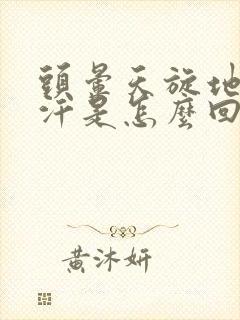 頭暈天旋地
汗是怎麼回
黃沐妍